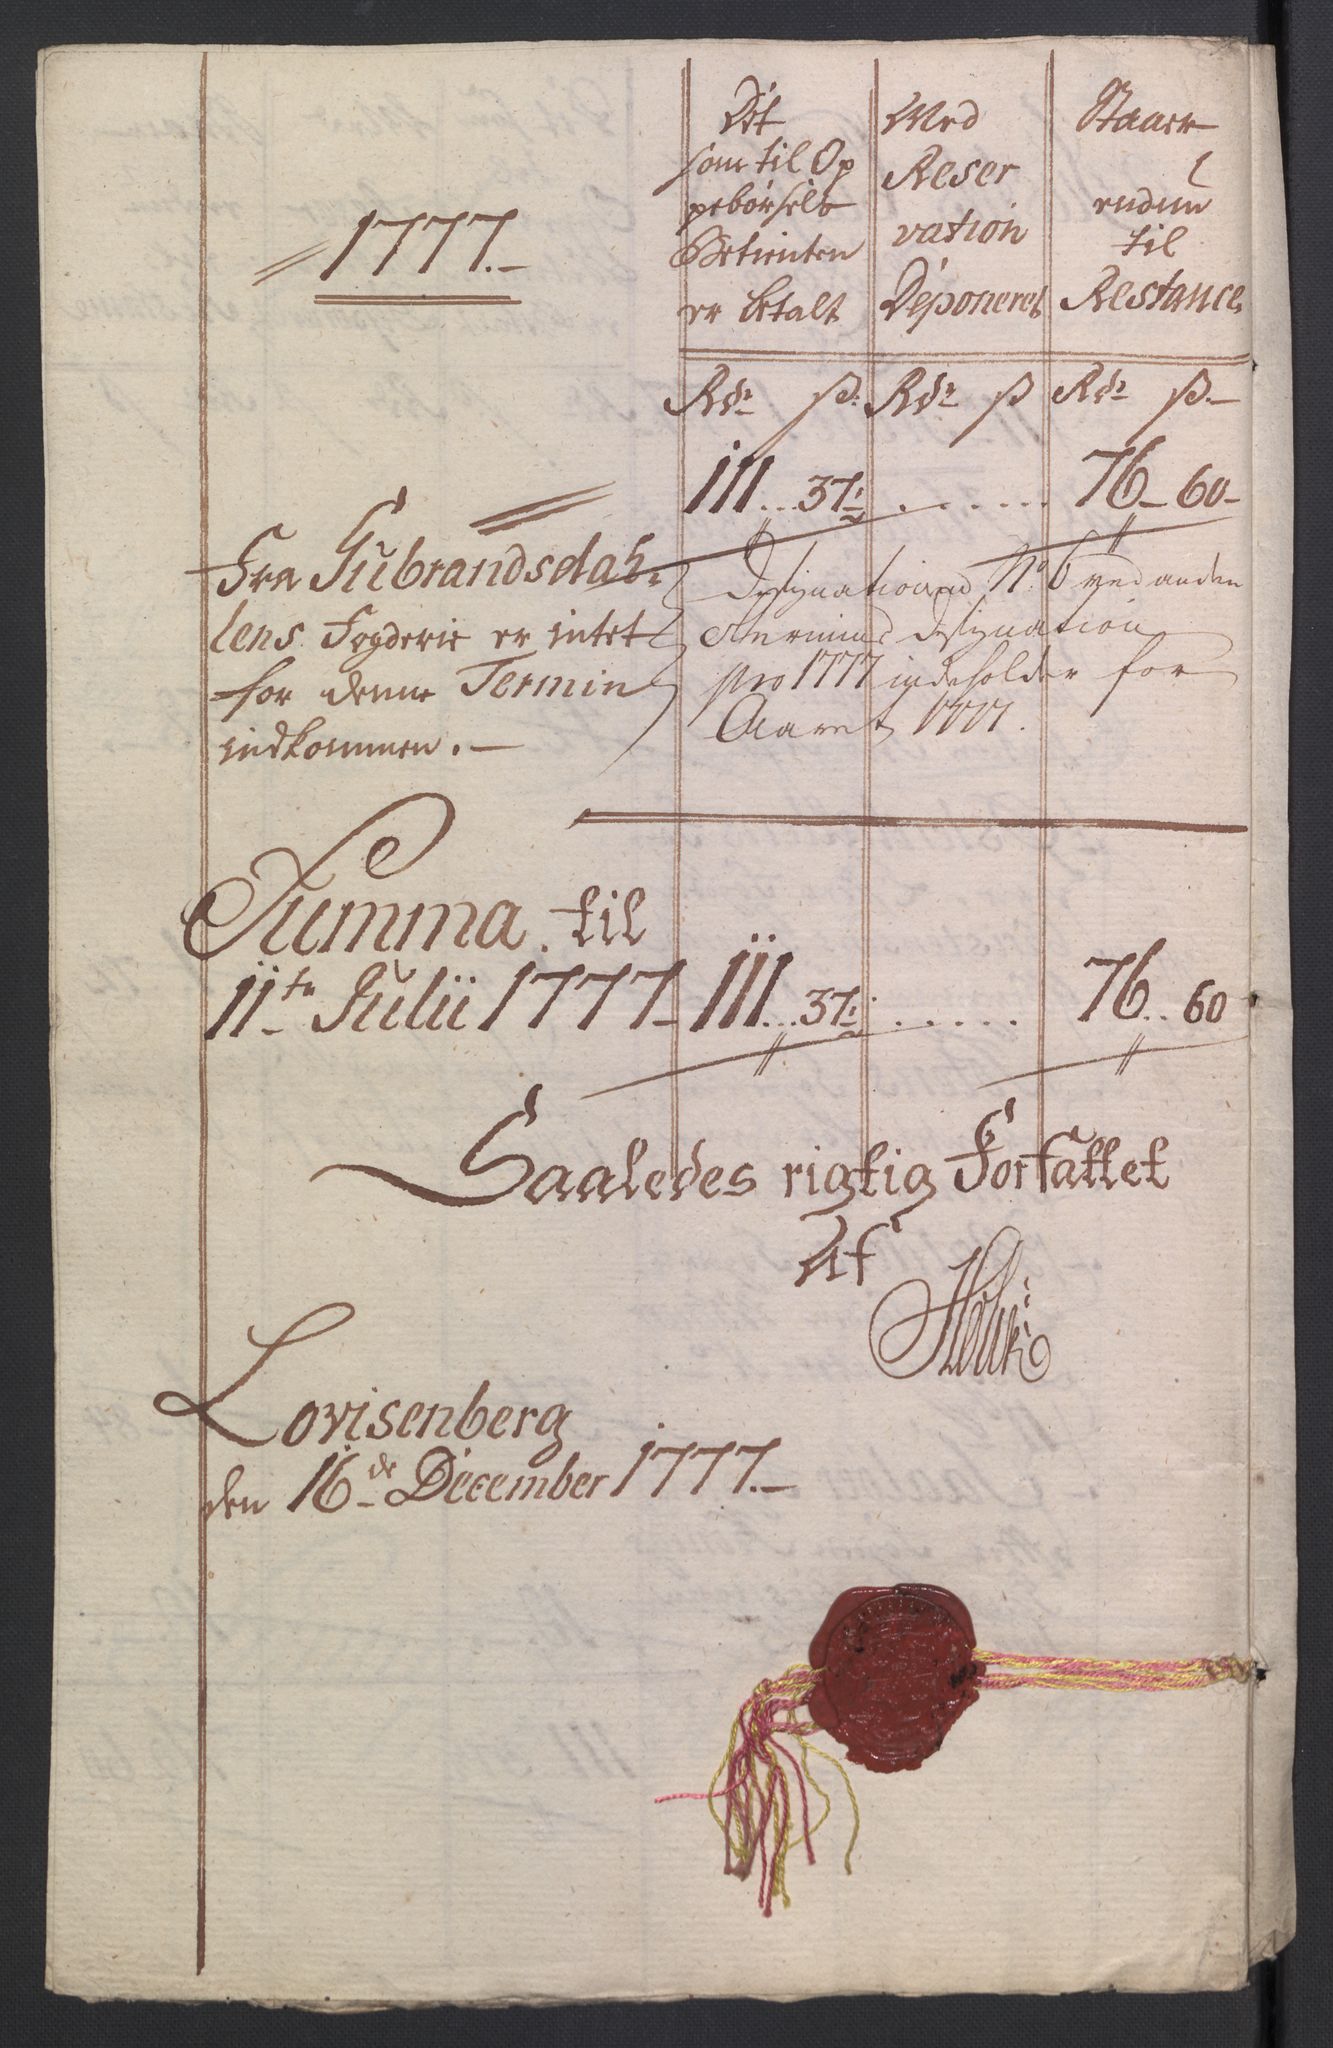 1777.
Det
som til Op
pebørsels
Betienten
er betalt
Med
Reser
vation
Deponeret
Staaer
endnu
til
Restance
Rdr ß: Rdr ß Rdr ß.
111...37½ ....... 76 60
Fra Gubrandsdah-
lens Fogderie er intet
for denne Termin
indkommen.
Designationen No 6 ved anden
Termins Designation
pro 1777 indeholder for
Aaret 1777.
Summa til
11te Julii 1777 111...37½ ...... 76..60
Saaledes rigtig Forfattet
Af
Lovisenberg
den 16de December 1777.